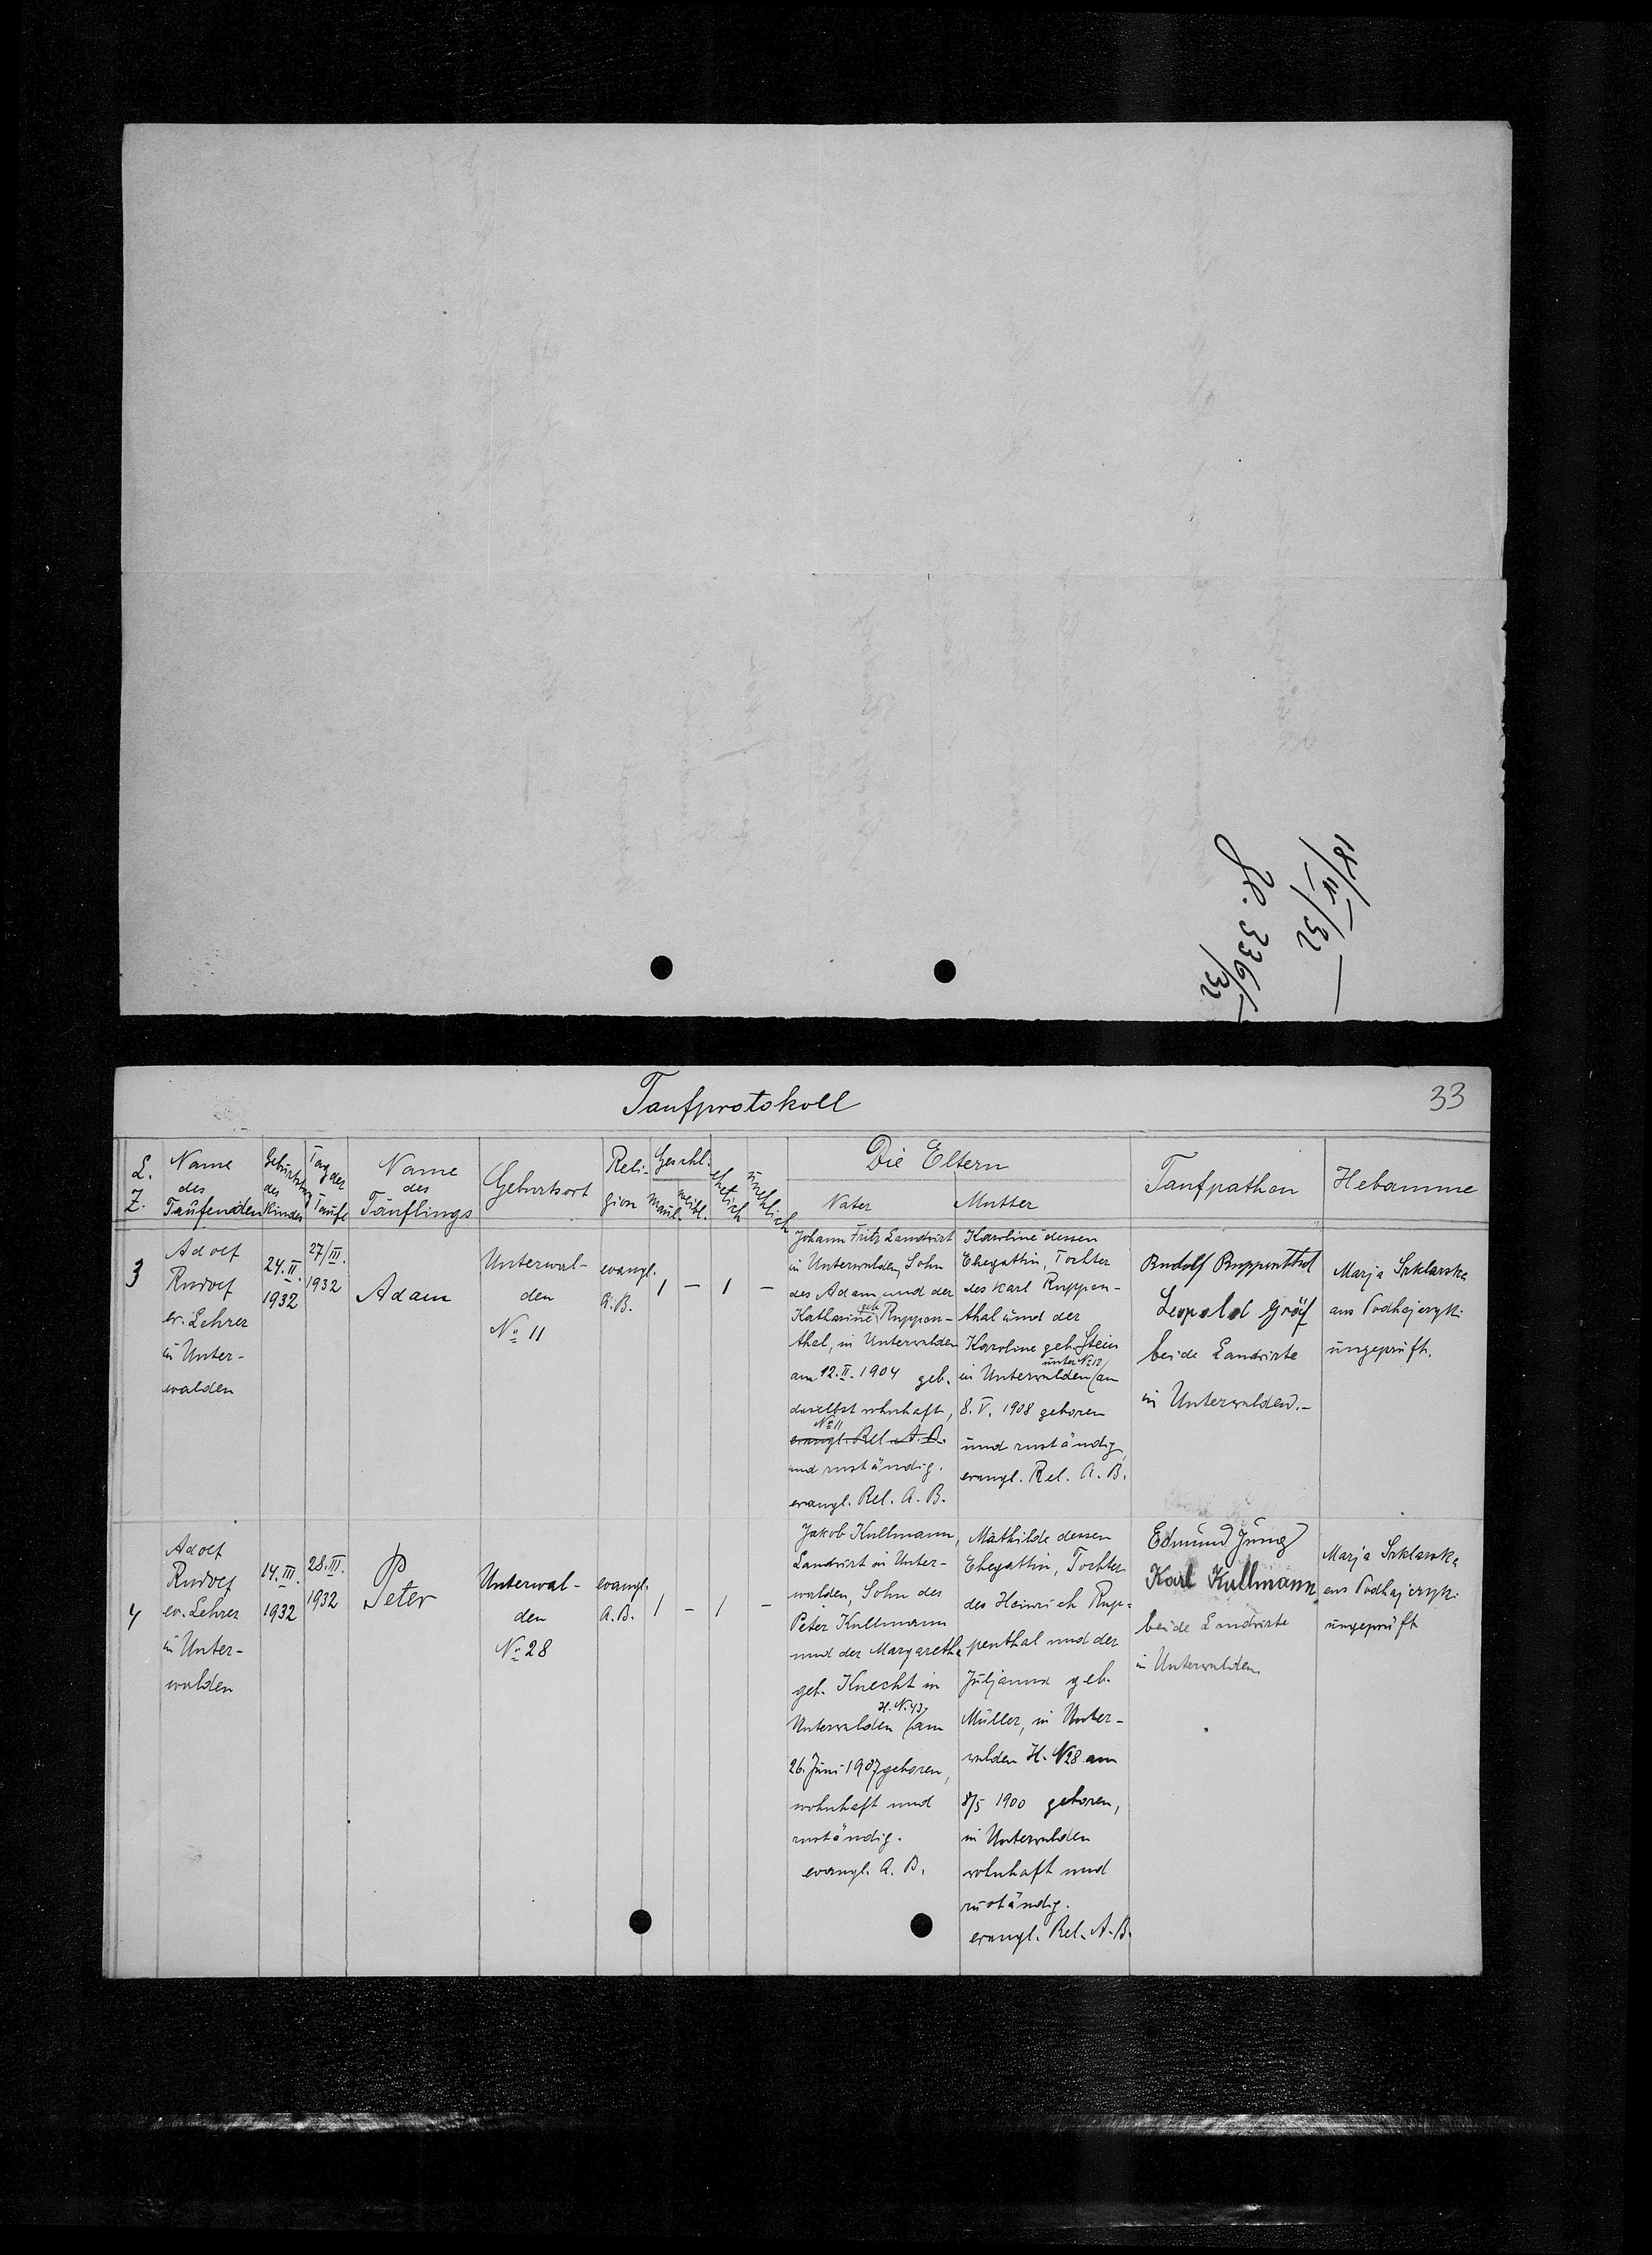 18/IV/32
336/32
Taufprotokoll
33
L. Z.
Name des Taufenden
Geburtstag des Kindes
Tag der Taufe
Name des Täuflings
Geburtsort
Religion
Geschl.
männl.
weibl.
ehelich
unehlich
Die Eltern
Vater
Mutter
Taufpathen
Hebamme
3
Adolf
Rudolf
ev. Lehrer
in Unter-
walden
24. II.
1932
27/III.
1932
Adam
Unterwal-
den
No 11
evangl.
A. B.
1
–
1
–
Johann Fritz Landwirt
in Unterwalden, Sohn
des Adam und der
Katharine geb. Ruppen-
thal, in Unterwalden
am 12. II. 1904 geb.
daselbst wohnhaft,
No 11
evangl. Rel. A. B.
und zuständig.
evangl. Rel. A. B.
Karoline dessen
Ehegattin, Tochter
des Karl Ruppen-
thal und der
Karoline geb. Stein
unter No 12
in Unterwalden (am
8. V. 1908 geboren
und zuständig,
evangl. Rel. A. B.
Rudolf Ruppenthal
Leopold Gräf
beide Landwirte
in Unterwalden.–
Marja Szklarska
aus Podhajczyki
ungeprüft.
4
Adolf
Rudolf
ev. Lehrer
in Unter-
walden
14. III.
1932
28. III.
1932
Peter
Unterwal-
den
No 28
evangl.
A. B.
1
–
1
–
Jakob Kullmann,
Landwirt in Unter-
walden, Sohn des
Peter Kullmann
und der Margaretha
geb. Knecht in
H. N. 43,
Unterwalden (am
26. Juni 1907 geboren,
wohnhaft und
zuständig.
evangl. A. B.
Mathilde dessen
Ehegattin, Tochter
des Heinrich Rup-
penthal und der
Juljanna geb.
Müller, in Unter-
walden H. N 28 am
8/5 1900 geboren,
in Unterwalden
wohnhaft und
zuständig.
evangl. Rel. A. B.
Edmund Jung
Karl Kullmann
beide Landwirte
in Unterwalden
Marja Szklarska
aus Podhajczyki
ungeprüft